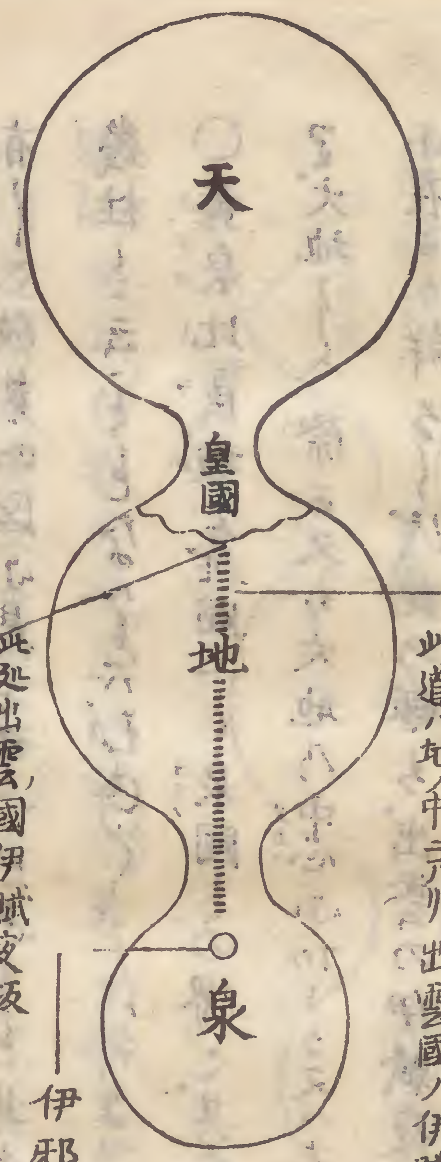 天
皇國
地
泉
此道ハ地ノ中ニアリ出雲國ノ伊賦
此処出雲ノ國伊賦夜坂
伊邪